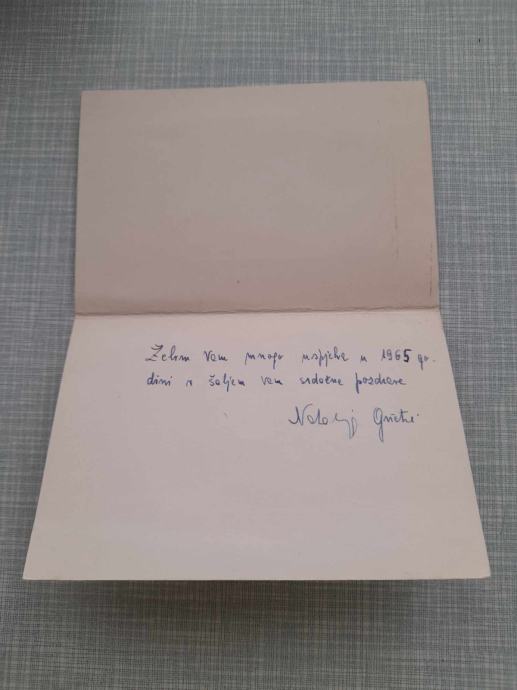 Želim Vam mnogo uspjeha u 1965 go-
dini i šaljem Vam srdačne pozdrave